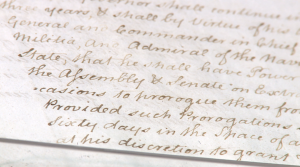 ernor shall continue in
three Years, & shall by Virtue of his
General and Commander in Chief
Militia, and Admiral of the Nav
State; that he shall have Power
the Assembly & Senate on Extra
casions to prorogue them from
Provided such Prorogations
sixty days in the Space of a
at his discretion to grant